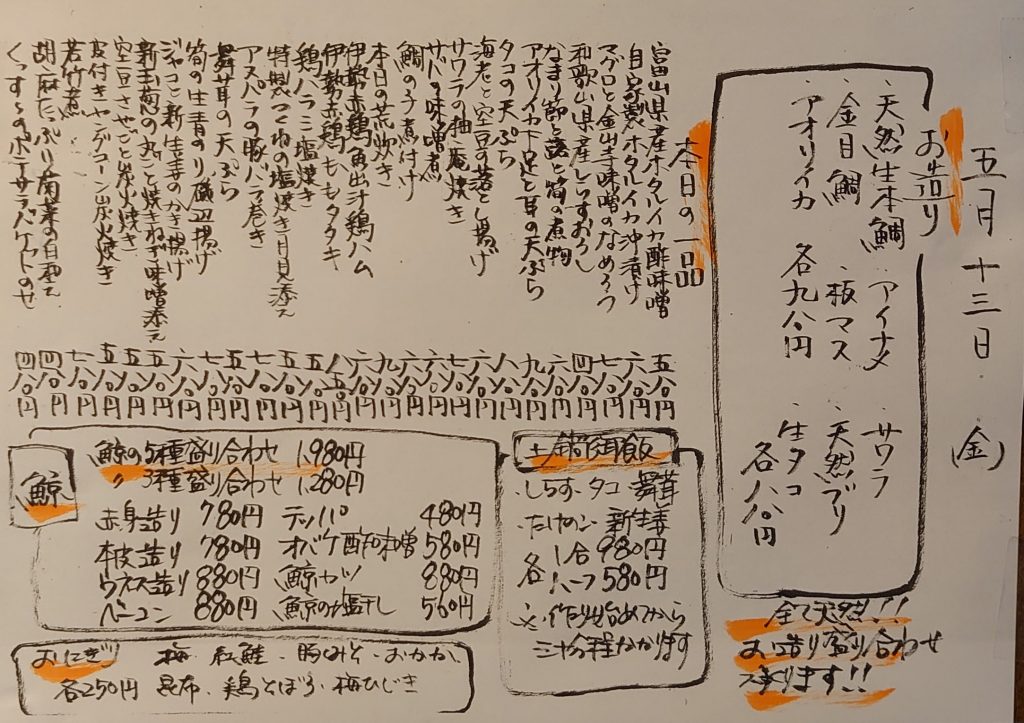 五月十三日(金)
お造り
・天然生本鯛 ・アイナメ ・サワラ
・金目鯛 ・板マス ・天然ブリ
・アオリイカ ・生タコ
各九八〇円 各八八〇円
全て天然!!
お造り盛り合わせ
承ります!!
本日の一品
富山県産ホタルイカ酢味噌 五八〇円
自家製ホタルイカ沖漬け 六八〇円
マグロと金山寺味噌のなめろう 七八〇円
和歌山県産しらすおろし 四八〇円
なまり節と蕗と筍の煮物 六八〇円
アオリイカ下足と耳の天ぷら 九八〇円
タコの天ぷら 八八〇円
海老と空豆の落とし揚げ 六八〇円
サワラの柚庵焼き 七八〇円
サバの味噌煮 六八〇円
鯛の子煮付け 六八〇円
本日の荒炊き 九八〇円
伊勢赤鶏魚出汁鶏ハム 六八〇円
伊勢赤鶏ももタタキ 八五〇円
鶏ハラミ塩焼き 五八〇円
特製つくねの塩焼き月見添え 五八〇円
アスパラの豚バラ巻き 七八〇円
舞茸の天ぷら 五八〇円
筍の生青のり磯辺揚げ 七八〇円
ジャコと新生姜のかき揚げ 六八〇円
新玉葱の丸ごと焼きねぎ味噌添え 五八〇円
空豆さやごと炭火焼き 五八〇円
皮付きヤングコーン炭火焼き
若竹煮 七八〇円
胡麻たっぷり菊菜の白和え 四八〇円
くっすんのポテサラバケットのせ 四八〇円
鯨
鯨の5種盛り合わせ 1,980円
〃 3種盛り合わせ 1,280円
赤身造り 780円 テッパ 480円
本皮造り 780円 オバケ酢味噌 580円
ウネス造り 880円 鯨カツ 880円
ベーコン 880円 鯨の塩干し 560円
土鍋御飯
・しらす・タコ・舞茸
・たけのこ・新生姜
各 1合 980円
各 ハーフ 580円
※作り始めてから
三十分程かかります
おにぎり 梅・紅鮭・胸みそ・おかか・
各250円 昆布・鶏そぼろ・梅ひじき